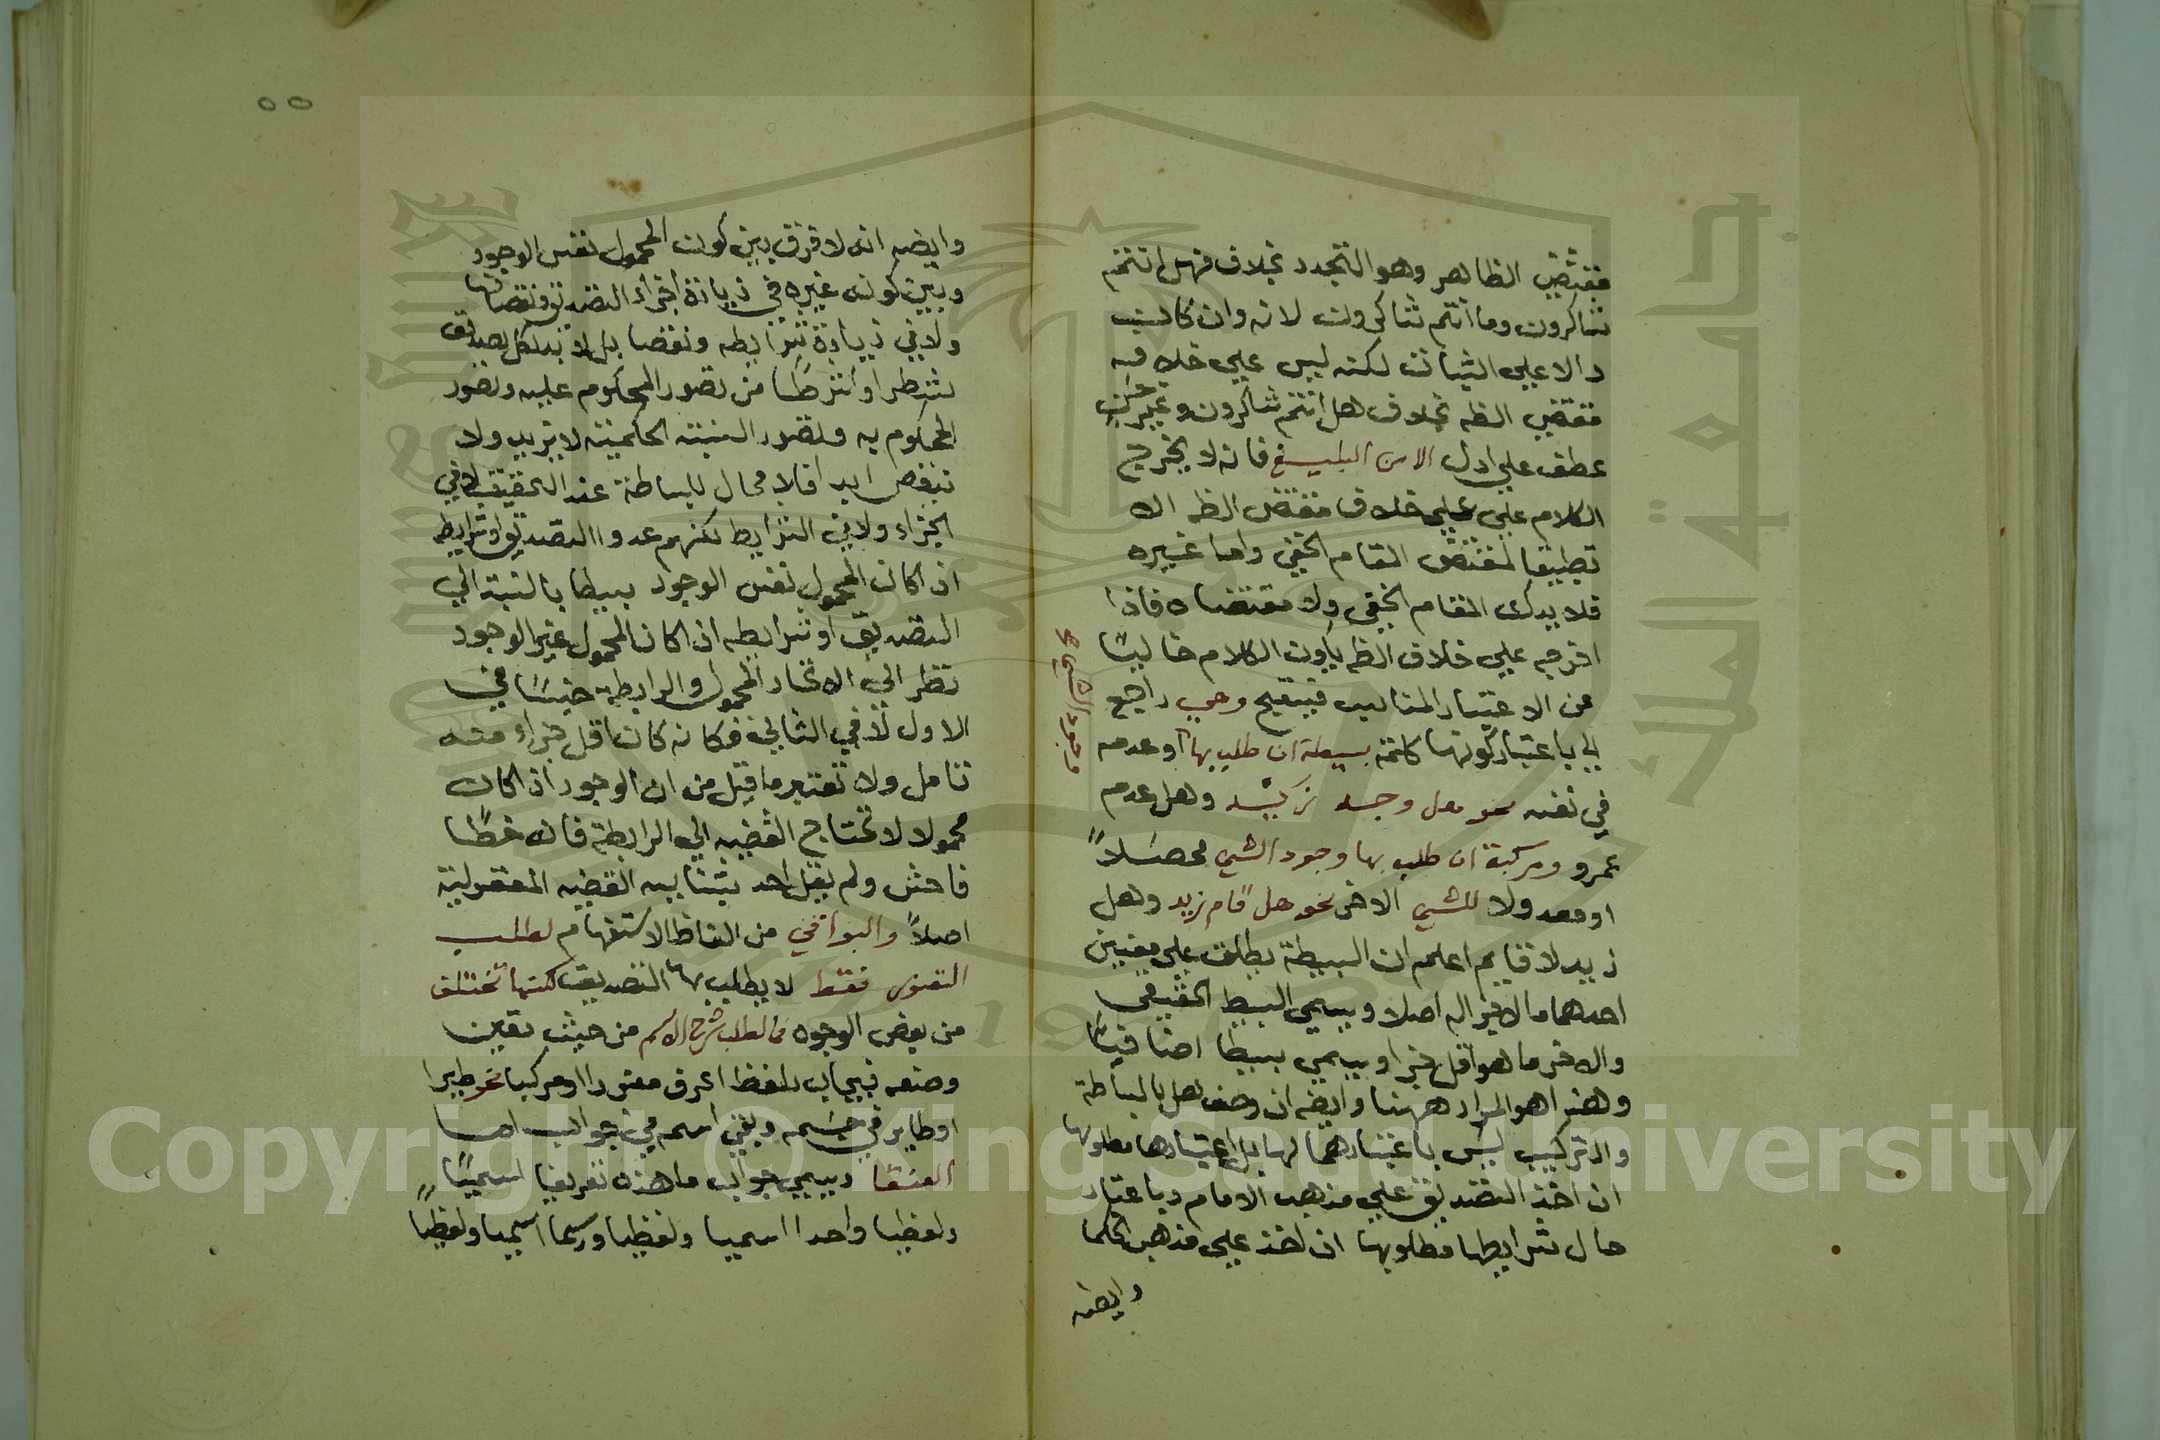 فقتضي الظاهر وهو التجدد بخلاف فهل انتم
شاكرون وما أنتم شاكرون لانه وان كانت
دالا علي الثبات لكنه ليس علي خلاف
مقتضي الظه بخلاف هل انتم شاكرون وغير حسن
عطف علي ادل الا من البليغ فانه لا يخرج
الكلام علي علي خلاف مقتضي الظه الا
تطبيقا لمقتضي المقام الخفي واما غيره
فلا يدرك المقام الخفي ولا مقتضاه فاذا
اخرجه علي خلاف الظه يكون الكلام خاليا
عن الاعتبار المناسب فيقبح وهي راجع
الي باعتبار كونها كلمة بسيطة ان طلب بها أو عدمه
وجود الشي
في نفسه نحو هل وجد زيد وهل عدم
عمرو ومركبة ان طلب بها وجود الشي محصلاً
او معدولا للشي الاخر نحو هل قام زيد وهل
زيد لا قايم اعلم ان البسيطة يطلق علي معنيين
احدهما ما لا جزء له اصلا ويسمي البسيط الحقيقي
والاخر ما هو اقل جزا ويسمي بسيطا اضافيا
وهذا هو المراد ههنا وايضه ان وصف هل بالبساطة
والتركيب ليس باعتبارهما لها بل باعتبارها مطلوبها
ان اخذ التصديق علي مذهب الامام وباعتبار
حال شرايطها مطلوبها ان اخذ علي مذهب الحكما
وايضه
٥٥
وايضه انه لا فرق بين كون المحمول نفس الوجود
وبين كونه غيره في زيادة اجزاء التصديق ونقصانها
ولا في زيادة شرايطه ونقصا بل لا بد لكل تصديق
شطرا او شرطا من تصور المحكوم عليه وتصور
المحكوم به وتصور النسبة الحكمية لا يزيد ولا
ينقص ابدا فلا مجال للبساطة عند التحقيق لا في
الجزاء ولا في الشرايط لكنهم عدوا التصديق او شرايطه
اذا كان المحمول نفس الوجود بسيطا بالنسبة الي
التصديق او شرايطه اذا كان المحمول غير الوجود
نظرا الي الاتحاد المحمول والرابطة حينئذ في
الاول لا في الثاني فكانه كان اقل جزاء منه
تامل ولا تغتر ما قيل من ان الوجود اذا كان
محمولا لا تحتاج القضيه الي الرابطة فانه خطا
فاحش ولم يقل احد بثنايية القضيه المعقولية
اصلاً والبواقي من الفاظ الاستفهام لطلب
التصور فقط لا يطلب بها التصديق لكنها تختلف
من بعض الوجوه فما لطلب شرح الاسم من حيث تعين
وضعه فيجاب بلفظ اعرف مفردا او مركبا نحو طيرا
او طاير في جسمه وبقي اسمه في جواب ما
العنقا ويسمي جواب ما هذه تعريفا اسميا
ولفظيا واحدا اسميا ولفظيا ورسما اسميا ولفظيا
Copyright © King Saud University
جامعة الملك سعود
1957